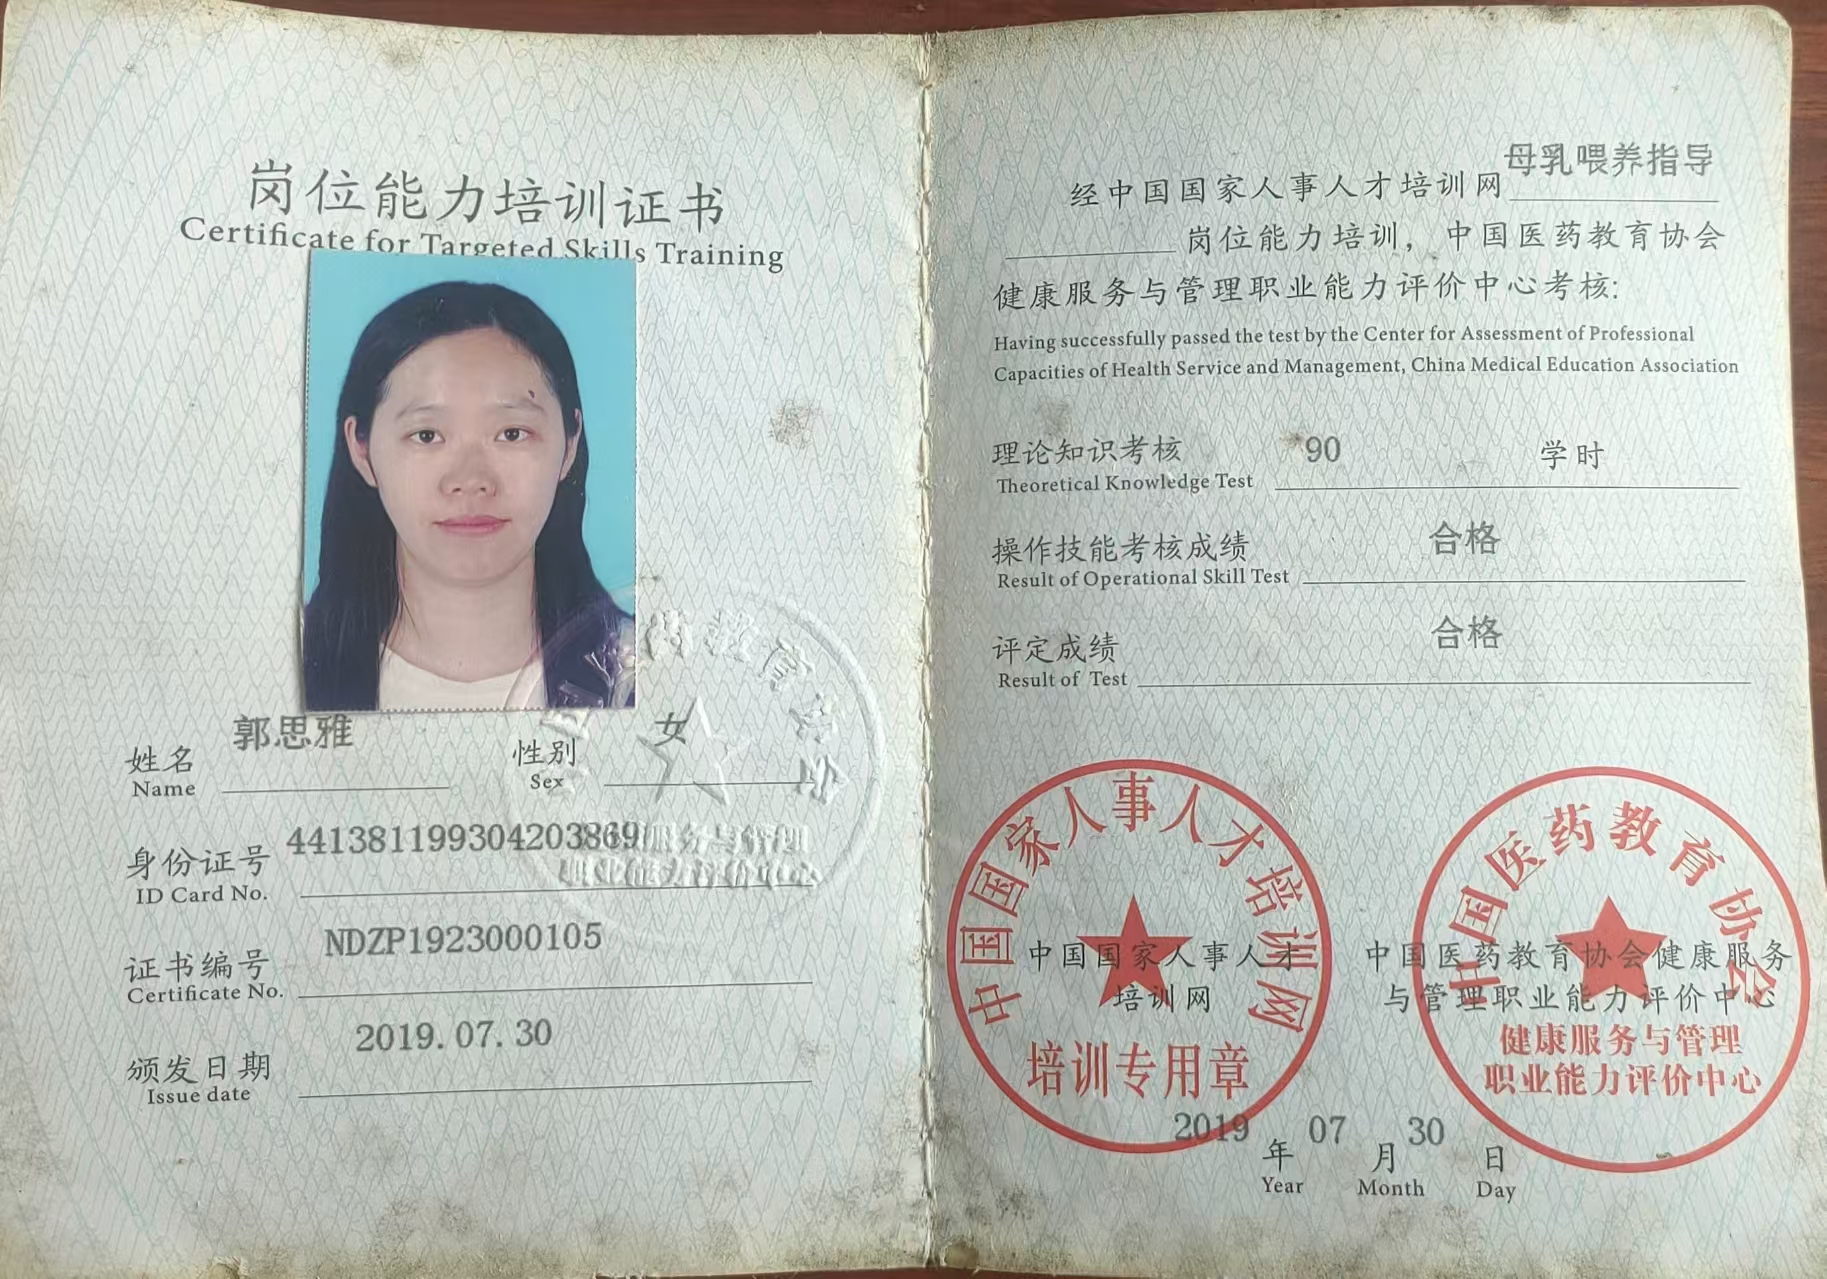 岗位能力培训证书
Certificate for Targeted Skills Training
姓名 郭思雅 性别 女
Name Sex
身份证号 441381199304203869
ID Card No.
证书编号 NDZP1923000105
Certificate No.
颁发日期 2019.07.30
Issue date
中国医药教育协会
健康服务与管理
职业能力评价中心
经中国国家人事人才培训网 母乳喂养指导
岗位能力培训，中国医药教育协会
健康服务与管理职业能力评价中心考核:
Having successfully passed the test by the Center for Assessment of Professional
Capacities of Health Service and Management, China Medical Education Association
理论知识考核 90 学时
Theoretical Knowledge Test
操作技能考核成绩 合格
Result of Operational Skill Test
评定成绩 合格
Result of Test
中国国家人事人才培训网
中国国家人事人才
培训网
培训专用章
中国医药教育协会
中国医药教育协会健康服务
与管理职业能力评价中心
健康服务与管理
职业能力评价中心
2019 年 07 月 30 日
Year Month Day